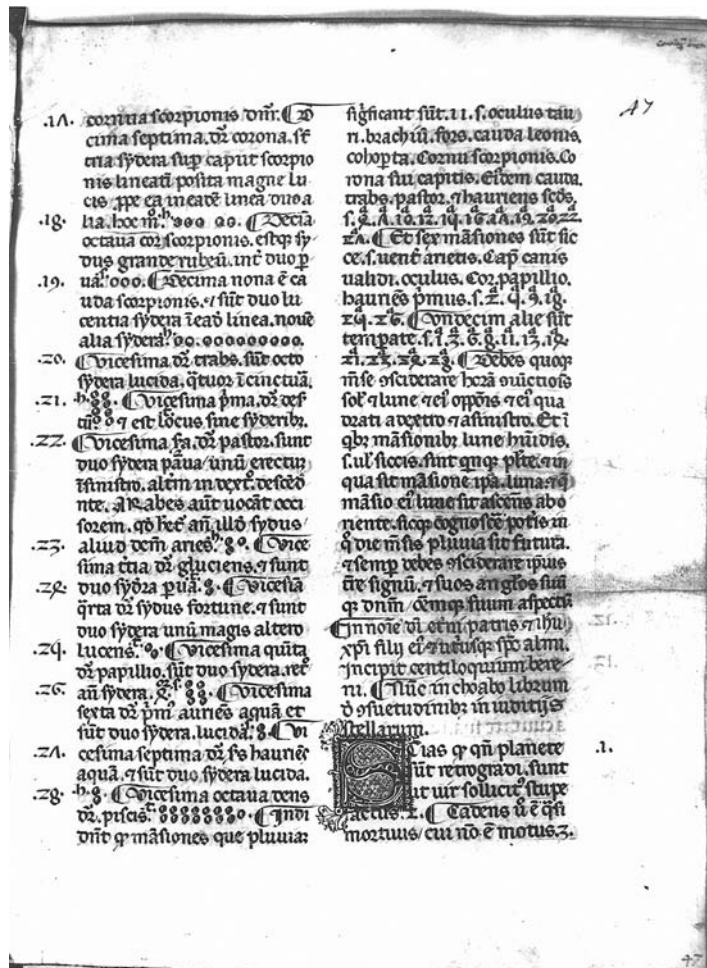 47
.17. cornua scorpionis dnr̄. ¶ D
cima septima. dr̄ corona. st̄
tria sydera sup̄ caput scorpio
nis lineatī posita magne lu
cis. ꝓpe ea in eadē linea duo a
.18. lia. hoc mͦ. ⁘ooo oo. ¶ Decīa
octaua cor scorpionis. estqꝫ sy
dus grande rubeū. int̄ duo ꝑ
.19. ua. ooo. ¶ Decima nona ē ca
uda scorpionis. ⁊ sūt duo lu
centia sydera ī eadͦ linea. nouē
alia sydera. oo. ooooooooo.
.20. ¶ Vicesima dr̄ trabs. sūt octo
sydera lucida. qͣtuor ī cinctuā.
.21. ¶ Vicesima p̄ma. dr̄ des
⁊ est locus sine syderibꝫ.
.22. ¶ Vicesima sͣa. dr̄ pastor. sunt
duo sydera ꝑua. unū erectuꝫ
ī sinistro. altm̄ in dext̄. descēd
nte. Arabes aūt uocāt occi
sorem. qͦ hēt an̄ illͦ sydus
.23. aliud dcm̄ aries. ¶ Vice
sima tͥtia dr̄ gluciens. ⁊ sunt
.24. duo sydera ꝑua. 8. ¶ Vicesīa
qͣrta dr̄ sydus fortune. ⁊ sunt
duo sydera unū magis altero
.25. lucens. ¶ Vicesima quīta
dr̄ papillio. sūt duo sydera. retͦ
.26. aū sydera. ¶ Vicesima
sexta dr̄ p̄mͦ auriēs aquā et
sūt duo sydera. lucida. 8. ¶ Vi
.27. cesima septima dr̄ sͦs hauriēs
aquā. ⁊ sūt duo sydera lucida.
.28. ¶ Vicesima octaua dens
dr̄. piscis. ¶ Indi
dn̄t qꝫ māsiones que pluuiaꝫ
sigͥficant sūt. 11. s. oculus tau
ri. brachiū. fors. cauda leonis.
cohoꝑta. Cornu scorpionis. Co
rona sui capitis. Eiꝰdem cauda.
trabs. pastor. ⁊ hauriens scd̄s.
s. 4. 7. 10. 12. 15. 16. 17. 19. 20. 22.
27. ¶ Et sex māsiones sūt sic
ce. s. uent̄ arietis. Cap̄ canis
ualidi. oculus. Cor. papillio.
hauriēs p̄mus. s. 2. 5. 9. 18.
25. 26. ¶ Vndecim alie sūt
temꝑate. s. 1. 3. 6. 8. 11. 13. 14.
21. 23. 24. 28. ¶ Debes quoqꝫ
inse ꝯsciderare horā ꝯiūctiōis
sol̄ ⁊ lune ⁊ eiꝰ oppōnis ⁊ eiꝰ qua
drati a dextro ⁊ a sinistro. Et ī
qͥbꝫ māsionibꝫ lune hūidis.
s. ul̄ siccis. sint qͥnqꝫ plēte. ⁊ in
qua sit māsione ip̄a luna. ⁊ qͣ
māsio eiꝰ lune sit ascēns abo
riente. sicqꝫ cognoscē potis in
qͦ die mēsis pluuia sit futura.
⁊ semꝑ debes ꝯsciderare ip̄ius
tr̄e signū. ⁊ suos anglōs suū
qꝫ dnm̄ / oēmqꝫ suum aspectū
¶ In noīe dī etn̄i patris ⁊ ihū
xp̄i filij eiꝰ ⁊ utͥusqꝫ sp̄o almi.
Incipit centiloquium bere
ni. ¶ Nūc inchoabo librum
ꝺ ꝯsuetudinibꝫ in iudicijs
stellarum.
.1. Scias qꝫ qn̄ planete
sūt retrogradi. sunt
ut uir sollicitꝰ stupe
factus. 2. ¶ Cadens ū ē qͣsi
mortuus / cui nō ē motus. 3.
47